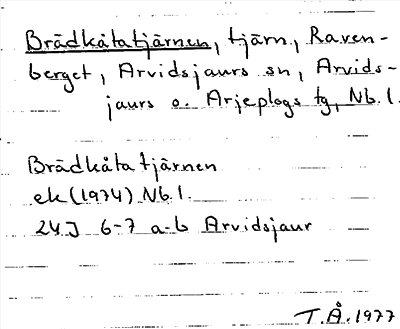 Brädkåtatjärnen, tjärn, Raven-
berget, Arvidsjaurs sn, Arvids-
jaurs o. Arjeplogs tg, Nb.l.
Brädkåtatjärnen
ek (1974) Nb.l.
24J 6-7 a-b Arvidsjaur
T.Å. 1977